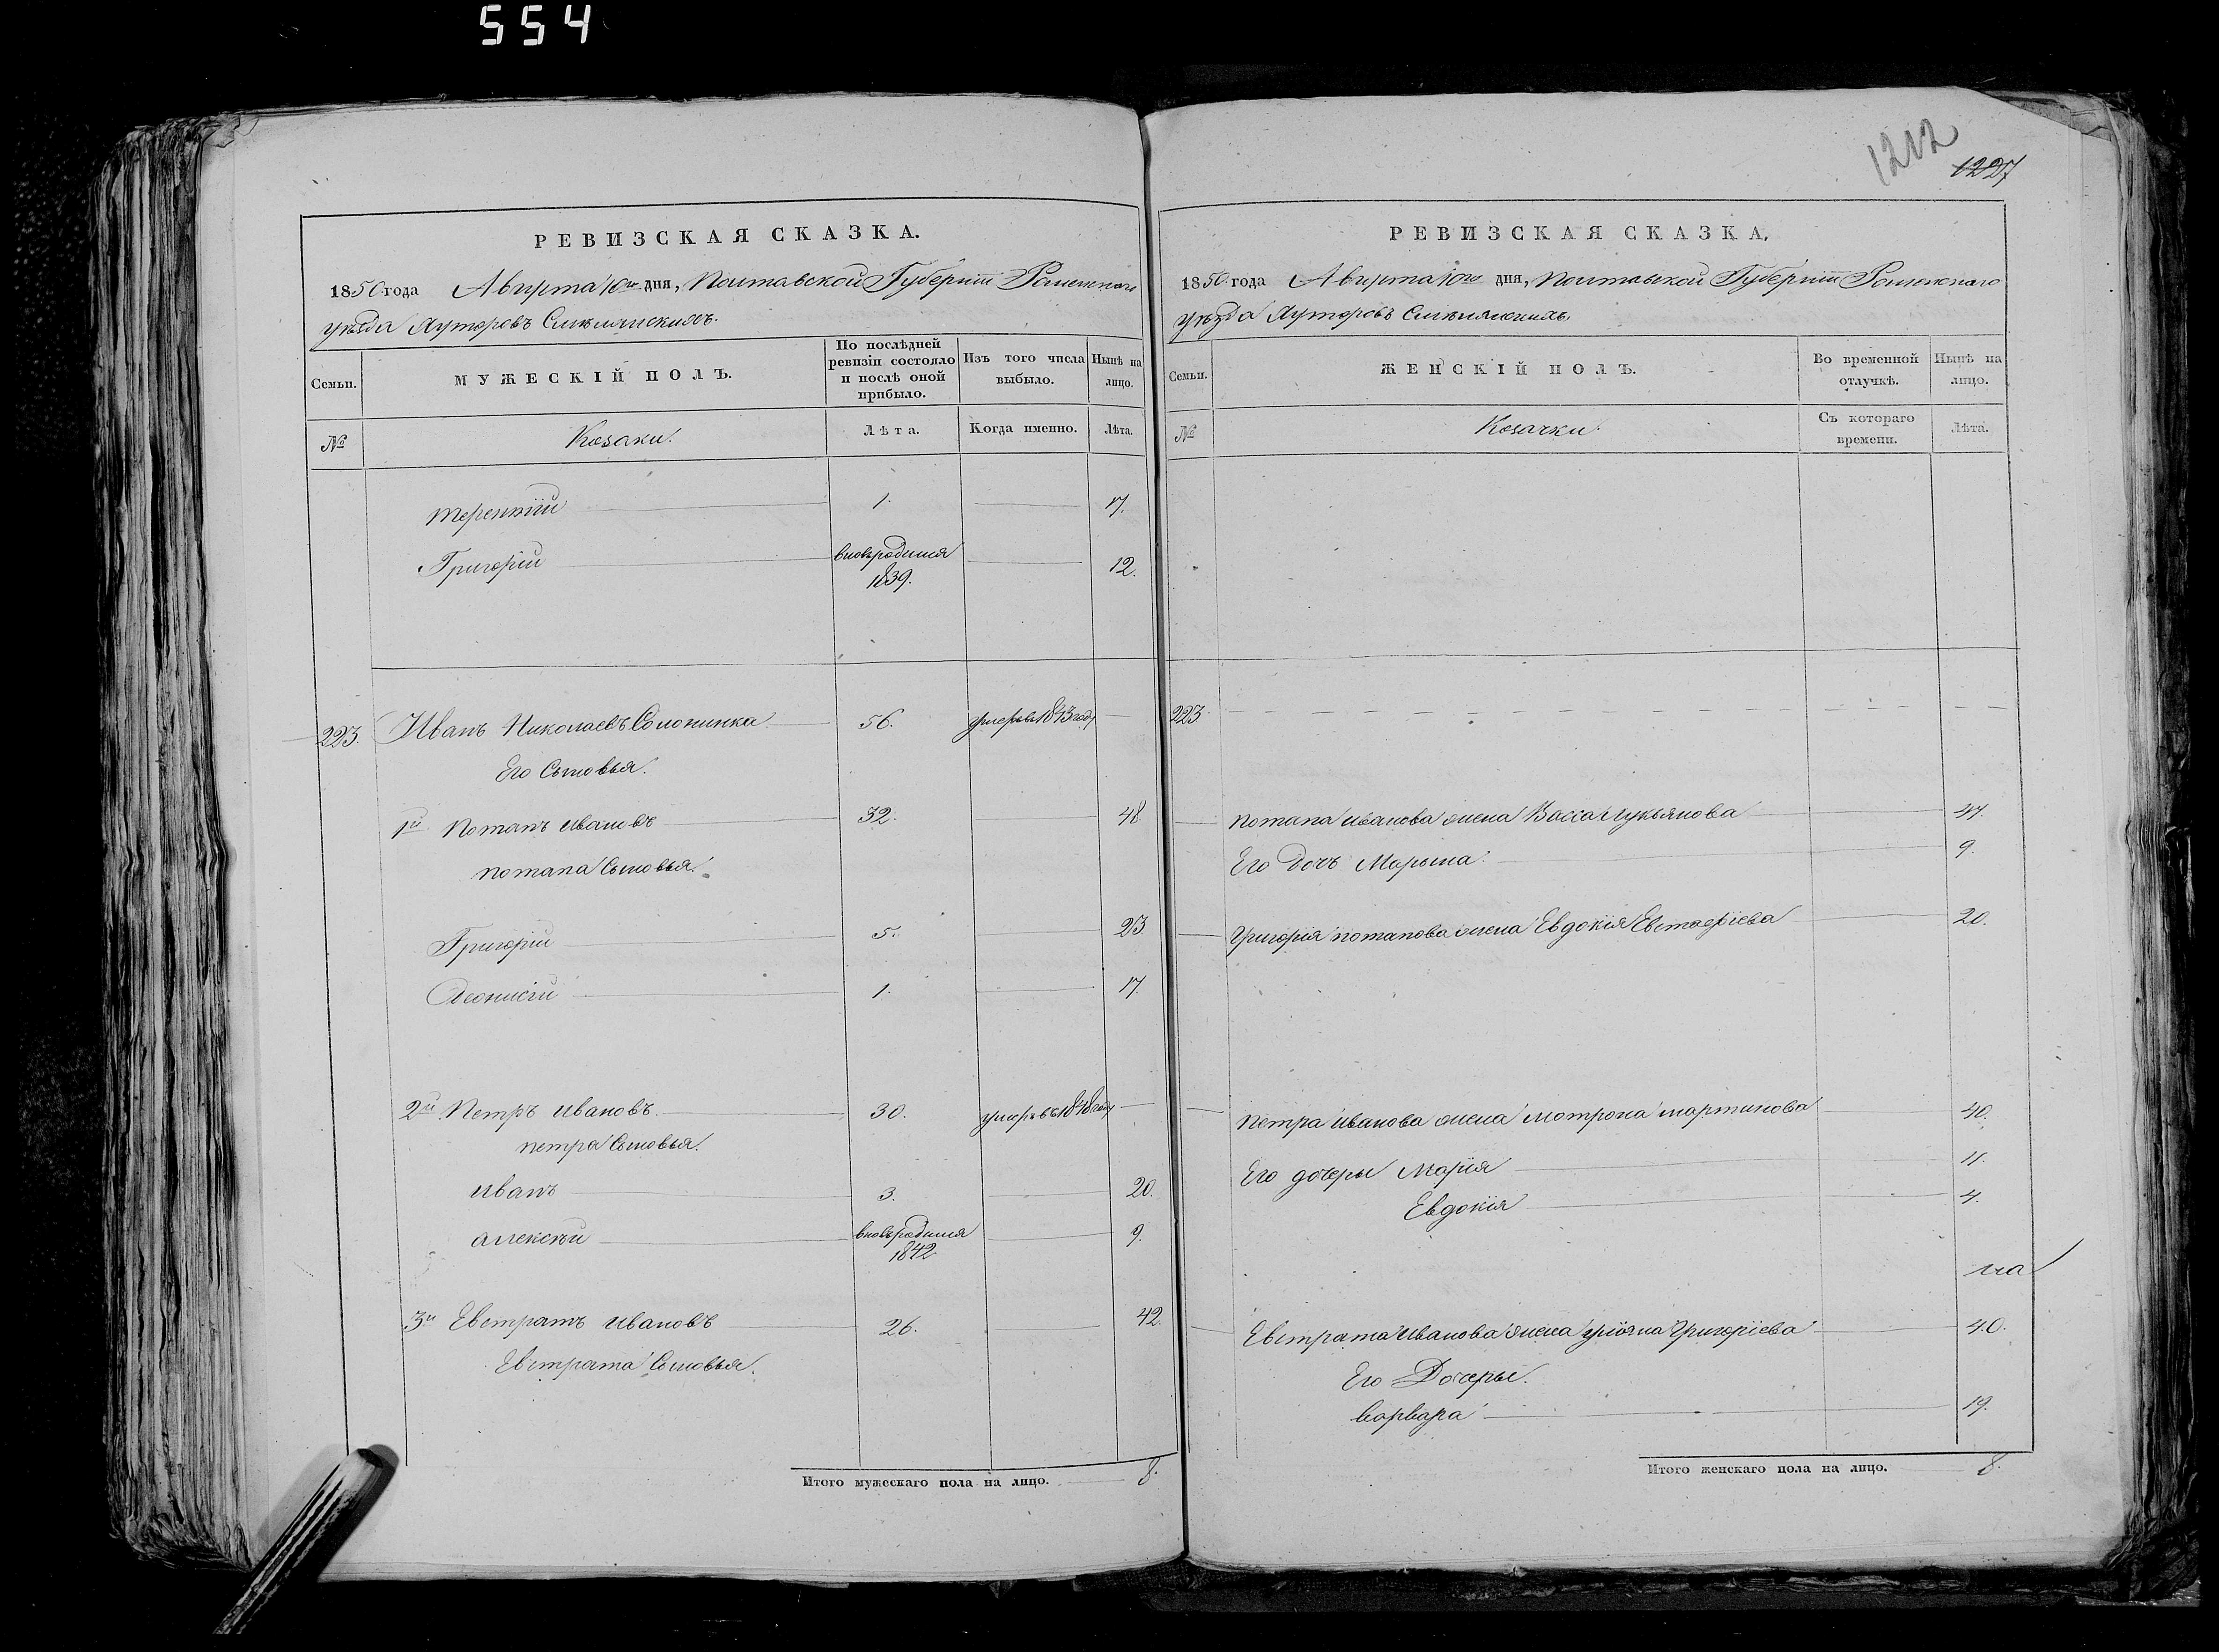 554
1212
1227
РЕВИЗСКАЯ СКАЗКА.
1850 года Августа 10го дня, Полтавской Губерніи Роменскаго
уѣзда Хуторовъ Смѣлянскихъ.
Семьи.
МУЖЕСКІЙ ПОЛЪ.
По послѣдней ревизіи состояло и послѣ оной прибыло.
Изъ того числа выбыло.
Нынѣ на лицо.
№
Козаки.
Лѣта.
Когда именно.
Лѣта.
Терентій 1. 17.
Григорій вновьродился 1839. 12.
223. Иванъ Николаевъ Солонинка 56. умеръ въ 1843 году
Его Сыновья.
1й Потапъ Ивановъ 32. 48.
Потапа Сыновья.
Григорій 5. 23
Деонисій 1. 17.
2й Петръ Ивановъ 30. умеръ въ 1848 году
Петра Сыновья.
Иванъ 3. 20.
Алексѣй вновьродился 1842 9.
3й Евстратъ Ивановъ 26. 42.
Евстрата Сыновья.
Итого мужескаго пола на лицо. 8.
РЕВИЗСКАЯ СКАЗКА.
1850 года Августа 10го дня, Полтавской Губерніи Роменскаго
уѣзда Хуторовъ Смѣлянскихъ.
Семьи.
ЖЕНСКІЙ ПОЛЪ.
Во временной отлучкѣ.
Нынѣ на лицо.
№
Козачки.
Съ котораго времени.
Лѣта.
223
Потапа Иванова жена Васса Лукьянова 47.
Его дочь Марьша. 9.
Григорія Потапова жена Евдокія Евстафіева 20.
Петра Иванова жена Мотрона Мартинова 40.
Его дочеры Марія 11.
Евдокія 4.
на
Евстрата Иванова жена Уліяна Григоріева 40.
Его Дочеры.
Варвара 19.
Итого женскаго пола на лицо. 8.